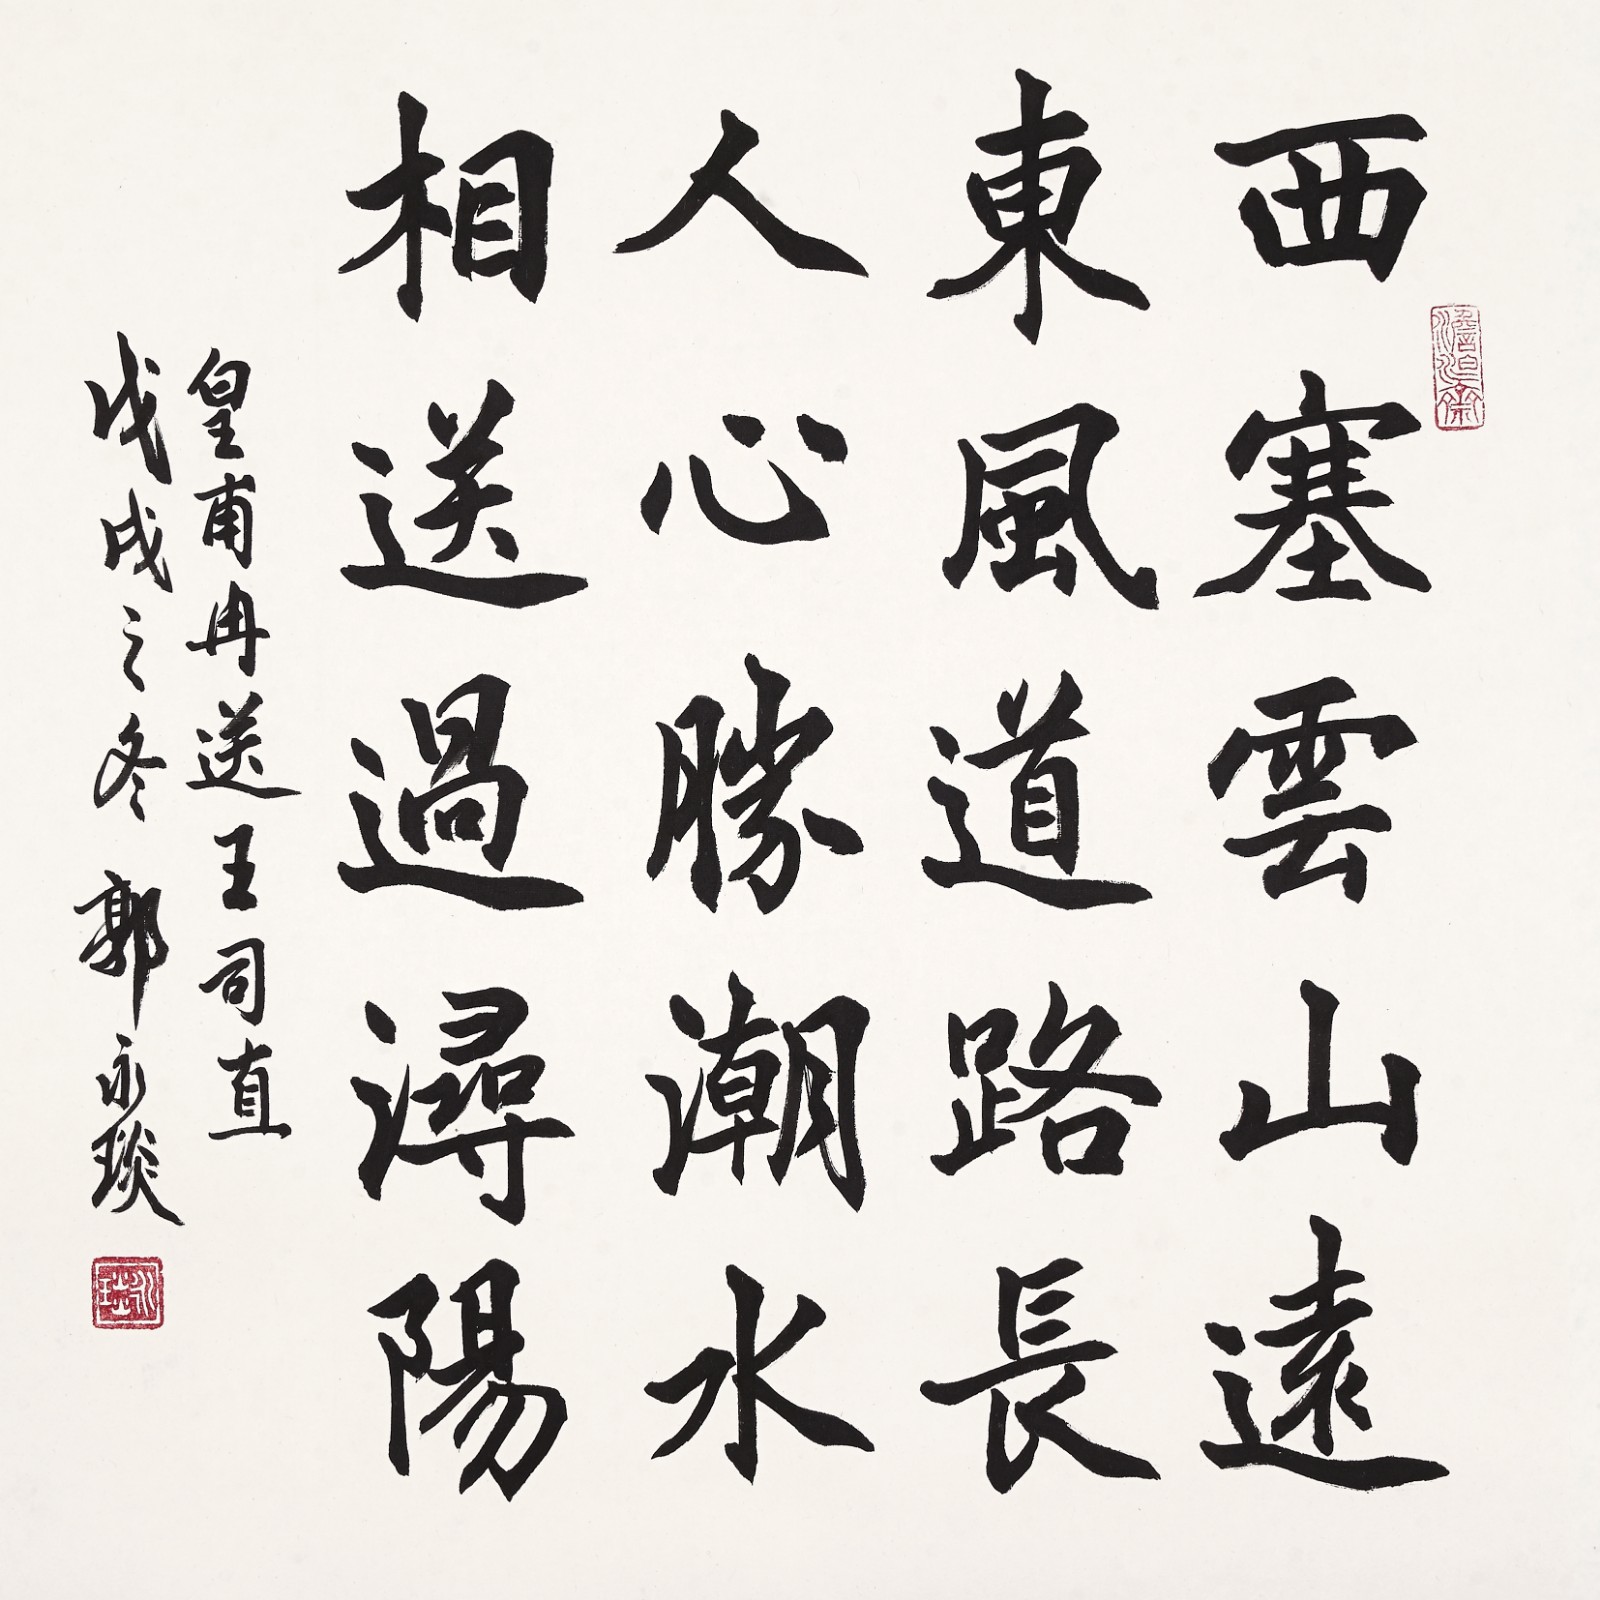 西塞雲山遠
東風道路長
人心勝潮水
相送過潯陽
皇甫冉送王司直
戊戌之冬 郭永琰